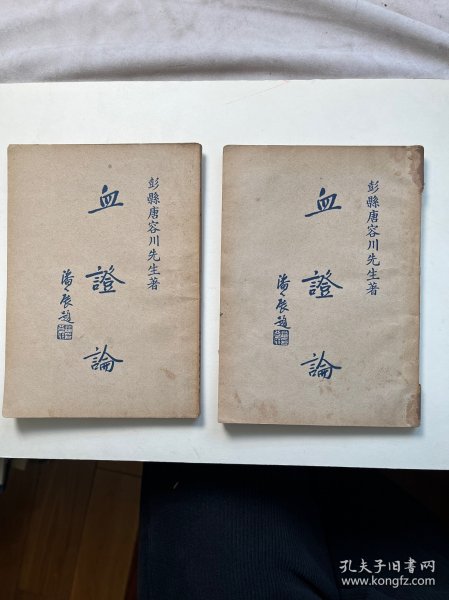 彭縣唐容川先生著
血證論
潘公展題
彭縣唐容川先生著
血證論
潘公展題
孔夫子旧书网
www.kongfz.com